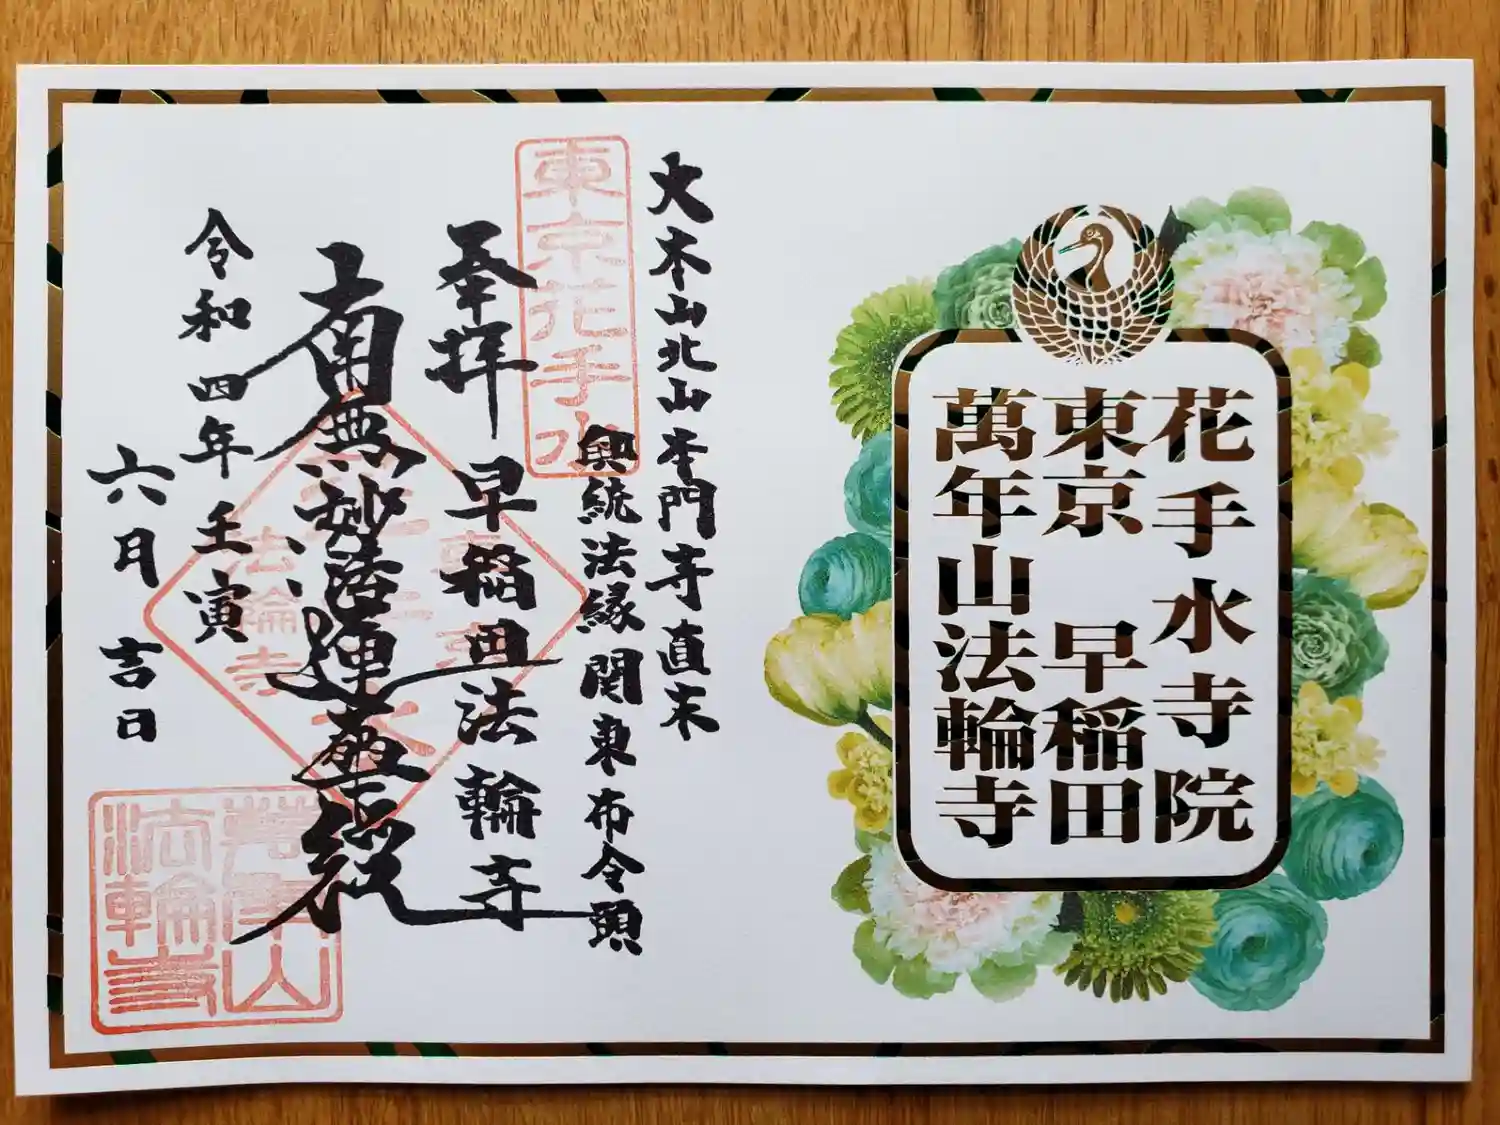 花手水寺院
東京 早稲田
萬年山法輪寺
大本山北山本門寺直末
興統法縁関東布令頭
東京花手水
奉拝 早稲田法輪寺
南無妙法蓮華経
令和四年壬寅
六月吉日
法輪寺
萬年山
法輪寺